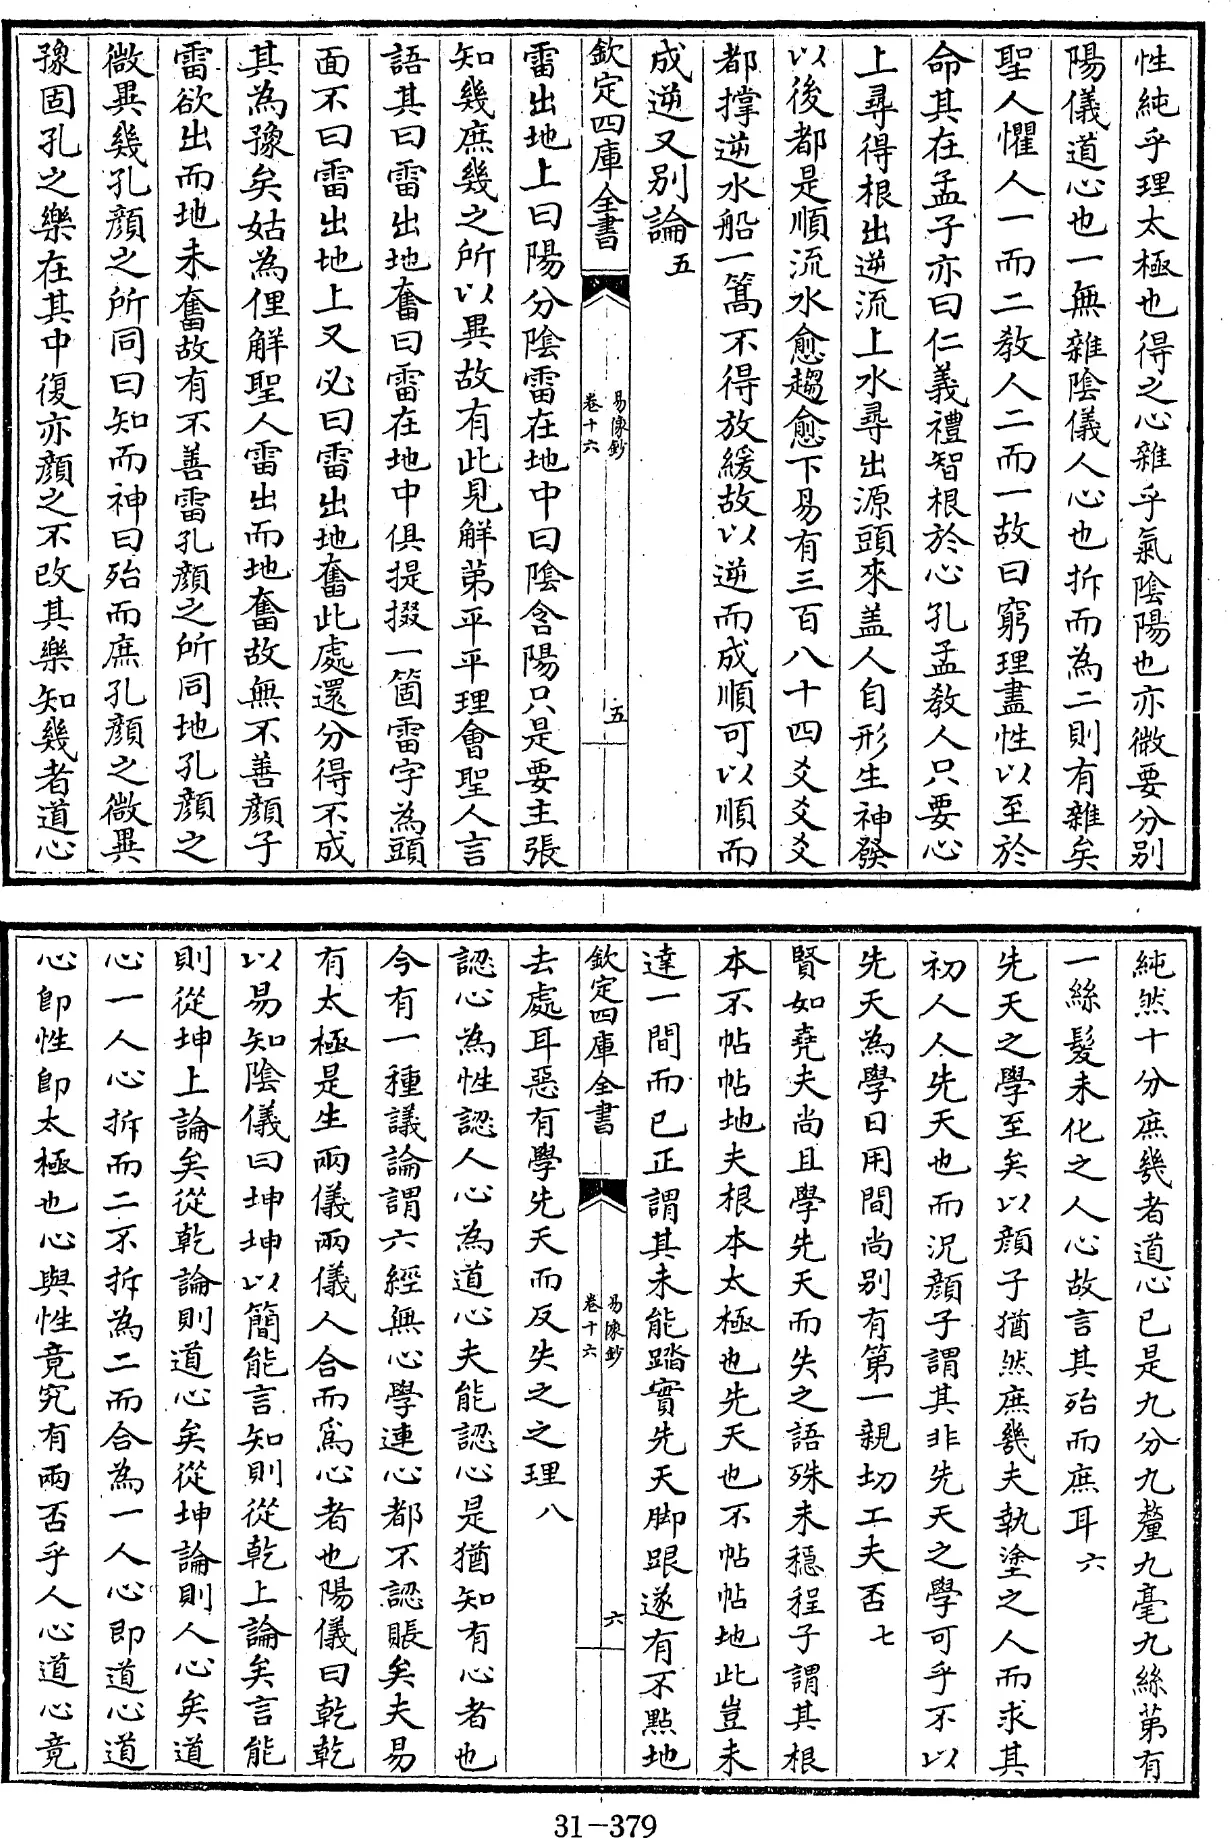 性純乎理太極也得之心雜乎氣陰陽也亦微要分別
陽儀道心也一無雜陰儀人心也拆而為二則有雜矣
聖人懼人一而二教人二而一故曰窮理盡性以至於
命其在孟子亦曰仁義禮智根於心孔孟教人只要心
上尋得根出逆流上水尋出源頭來盖人自形生神發
以後都是順流水愈趨愈下易有三百八十四爻爻爻
都撑逆水船一篙不得放緩故以逆而成順可以順而
成逆又别論五
欽定四庫全書
易像鈔
卷十六
五
雷出地上曰陽分陰雷在地中曰陰含陽只是要主張
知幾庶幾之所以異故有此見解第平平理會聖人言
語其曰雷出地奮曰雷在地中俱提掇一箇雷字為頭
面不曰雷出地上又必曰雷出地奮此處還分得不成
其為豫矣姑為俚解聖人雷出而地奮故無不善顔子
雷欲出而地未奮故有不善雷孔顔之所同地孔顔之
微異幾孔顔之所同曰知而神曰殆而庶孔顔之微異
豫固孔之樂在其中復亦顔之不改其樂知幾者道心
純然十分庶幾者道心已是九分九釐九毫九絲第有
一絲髮未化之人心故言其殆而庶耳六
先天之學至矣以顔子猶然庶幾夫執塗之人而求其
初人人先天也而況顔子謂其非先天之學可乎不以
先天為學日用間尚别有第一親切工夫否七
賢如堯夫尚且學先天而失之語殊未穩程子謂其根
本不帖帖地夫根本太極也先天也不帖帖地此豈未
達一間而已正謂其未能踏實先天脚跟遂有不點地
欽定四庫全書
易像鈔
卷十六
六
去處耳惡有學先天而反失之之理八
認心為性認人心為道心夫能認心是猶知有心者也
今有一種議論謂六經無心學連心都不認賬矣夫易
有太極是生兩儀兩儀人合而為心者也陽儀曰乾乾
以易知陰儀曰坤坤以簡能言知則從乾上論矣言能
則從坤上論矣從乾論則道心矣從坤論則人心矣道
心一人心拆而二不拆為二而合為一人心即道心道
心即性即太極也心與性竟究有兩否乎人心道心竟
31-379